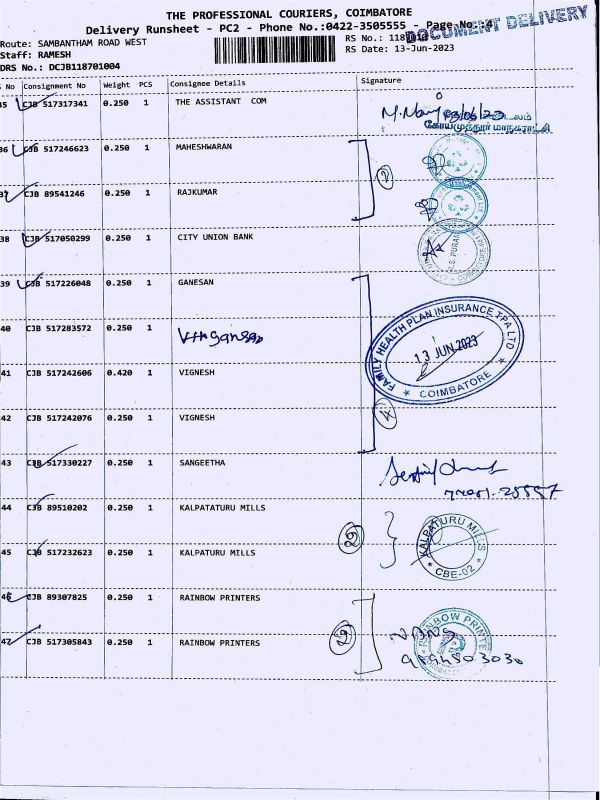 THE PROFESSIONAL COURIERS, COIMBATORE
Delivery Runsheet - PC2 - Phone No.:0422-3505555 - Page No.:4
DOCUMENT DELIVERY
Route: SAMBANTHAM ROAD WEST
RS No.: 118
Staff: RAMESH
RS Date: 13-Jun-2023
DRS No.: DCJB118701004
No Consignment No Weight PCS Consignee Details Signature
35 CJB 517317341 0.250 1 THE ASSISTANT COM
கோயமுத்தூர் மாநகராட்சி
36 CJB 517246623 0.250 1 MAHESHWARAN
2
37 CJB 89541246 0.250 1 RAJKUMAR
38 CJB 517050299 0.250 1 CITY UNION BANK
R.S. PURAM
39 CJB 517226048 0.250 1 GANESAN
40 CJB 517283572 0.250 1
FAMILY HEALTH PLAN INSURANCE TPA LTD
13 JUN 2023
COIMBATORE
41 CJB 517242606 0.420 1 VIGNESH
42 CJB 517242076 0.250 1 VIGNESH
4
43 CJB 517330227 0.250 1 SANGEETHA
44 CJB 89510202 0.250 1 KALPATATURU MILLS
KALPATURU MILLS
CBE-02
45 CJB 517232623 0.250 1 KALPATURU MILLS
46 CJB 89307825 0.250 1 RAINBOW PRINTERS
RAINBOW PRINTE
47 CJB 517305843 0.250 1 RAINBOW PRINTERS